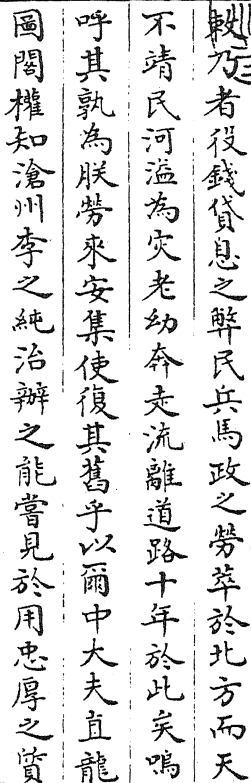 敕乃者役錢貸息之弊民兵馬政之勞萃於北方而天
不靖民河溢為灾老幼奔走流離道路十年於此矣嗚
呼其孰為朕勞來安集使復其舊乎以爾中大夫直龍
圖閣權知滄州李之純治辦之能嘗見於用忠厚之質